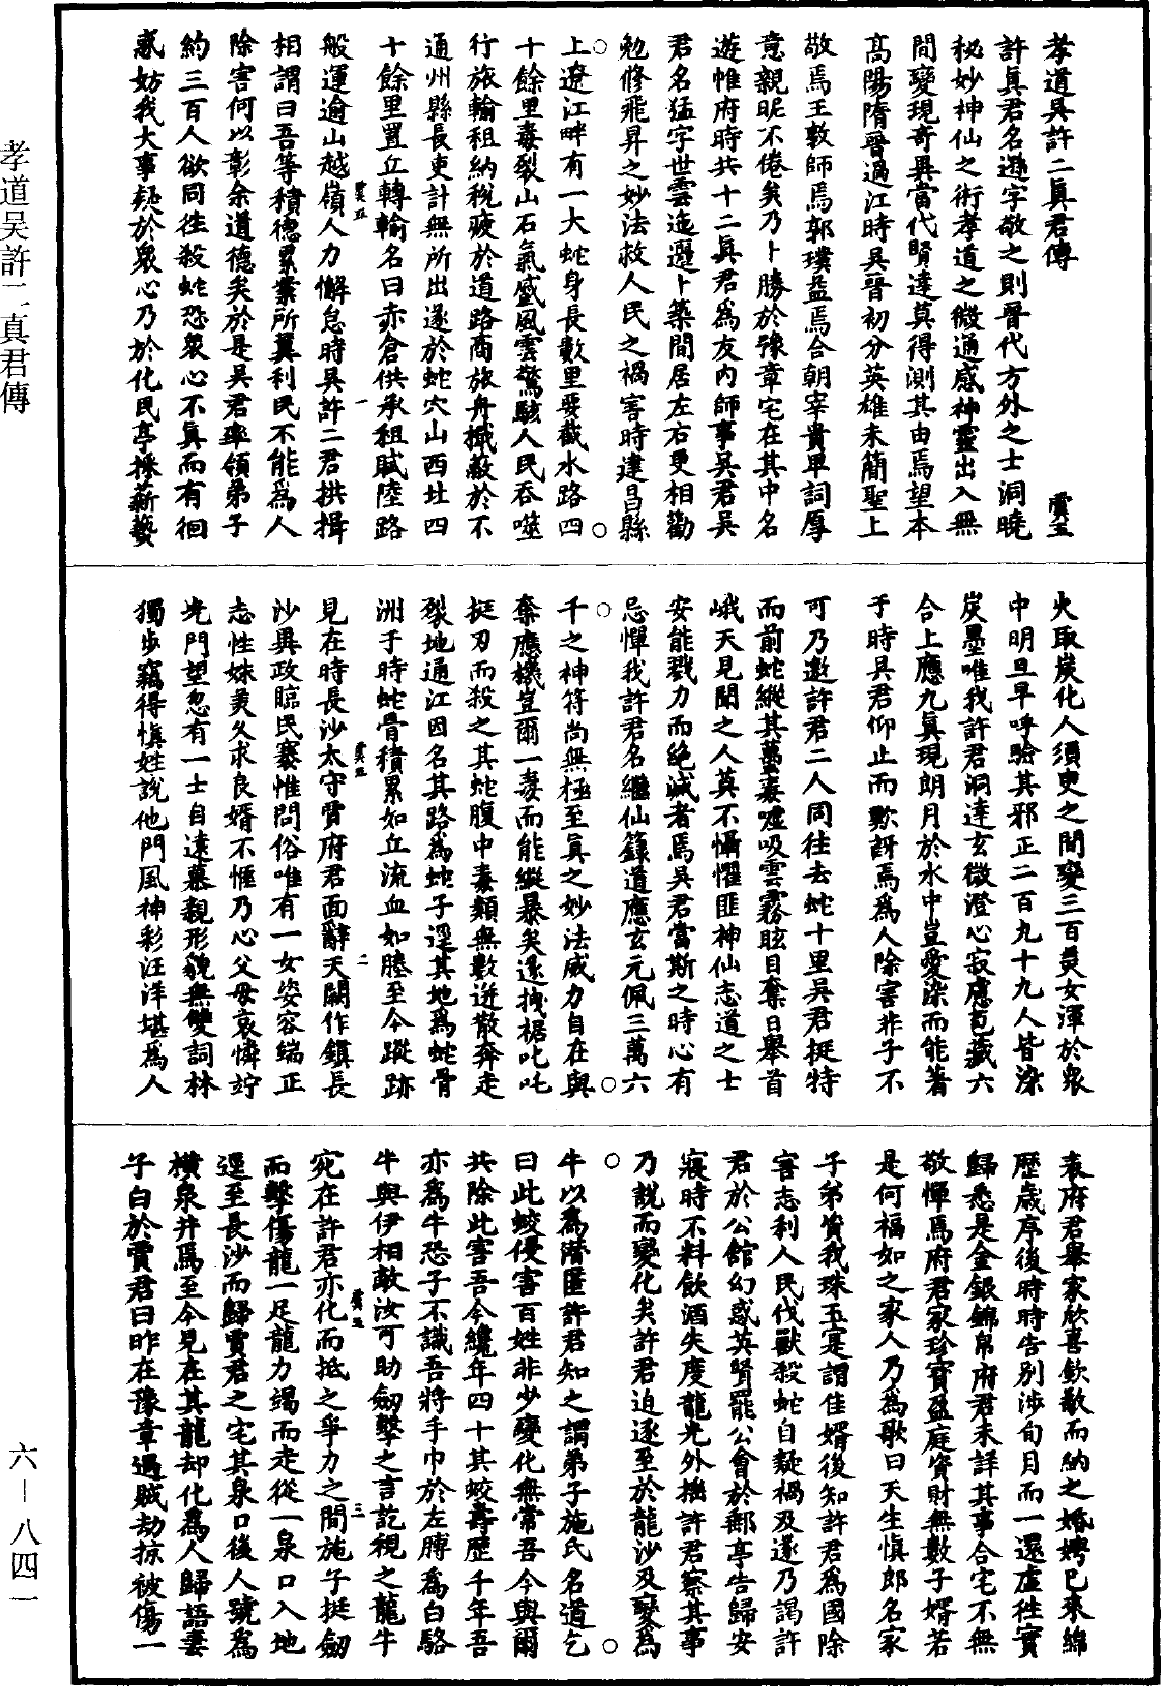 孝道吳許二真君傳
六—八四一
孝道吳許二真君傳　虞五
許真君名遜字敬之則晉代方外之士洞曉
秘妙神仙之術孝道之微通感神靈出入無
間變現奇異當代賢達莫得測其由焉望本
高陽隋晉過江時吳晉初分英雄未簡聖上
敬焉王敦師焉郭璞益焉合朝宰貴卑詞厚
意親昵不倦矣乃卜勝於豫章宅在其中名
遊惟府時共十二真君為友內師事吳君吳
君名猛字世雲迤邐卜築間居左右更相勸
勉修飛昇之妙法救人民之禍害時建昌縣
上遼江畔有一大蛇身長數里要截水路四
十餘里毒裂山石氣盛風雲驚駭人民吞噬
行旅輸租納稅疲於道路商旅舟檝蔽於不
通州縣長吏計無所出遂於蛇穴山西北四
十餘里置丘轉輸名曰赤倉供承租賦陸路
般運逾山越嶺人力懈怠時吳許二君拱揖
相謂曰吾等積德累業所冀利民不能為人
除害何以彰余道德矣於是吳君率領弟子
約三百人欲同往殺蛇恐眾心不真而有徊
惑妨我大事疑於眾心乃於化民亭採薪爇
虞五　一
火取炭化人須臾之間變三百美女渾於眾
中明旦早呼驗其邪正二百九十九人皆染
炭墨唯我許君洞達玄微澄心寂慮苞藏六
合上應九真現朗月於水中豈愛染而能著
于時吳君仰止而歎訝焉為人除害非子不
可乃邀許君二人同往去蛇十里吳君挺特
而前蛇縱其蠆毒噓吸雲霧眩目奪日舉首
峨天見聞之人莫不懾懼匪神仙志道之士
安能戮力而絕滅者焉吳君當斯之時心有
忌憚我許君名繼仙籙道應玄元佩三萬六
千之神符尚無極至真之妙法威力自在與
奪應機豈爾一毒而能縱暴矣遂拽裾叱吒
挺刃而殺之其蛇腹中毒類無數迸散奔走
裂地通江因名其路為蛇子逕其地為蛇骨
洲于時蛇骨積累如丘流血如塍至今蹤跡
見在時長沙太守賈府君面辭天闕作鎮長
沙異政臨民褰惟問俗唯有一女姿容端正
志性姝美久求良婿不愜乃心父母哀憐竚
光門望忽有一士自遠慕親形貌無雙詞林
獨步竊得慎姓說他門風神彩汪洋堪為人
虞五　二
表府君舉家欣喜欽敬而納之婚娉已來綿
歷歲序後時時告別涉旬月而一還虛往實
歸悉是金銀錦帛府君未詳其事合宅不無
敬憚焉府君家珍寶盈庭資財無數子婿若
是何福如之家人乃為歌曰天生慎郎名家
子弟質我珠玉寔謂佳婿後知許君為國除
害志利人民伐獸殺蛇自疑禍及遂乃謁許
君於公館幻惑英賢罷公會於郵亭告歸安
寢時不料飲酒失度龍光外拋許君察其事
乃說而變化矣許君迫逐至於龍沙及變為
牛以為潛匿許君知之謂弟子施氏名道乞
曰此蛟侵害百姓非少變化無常吾今與爾
共除此害吾今纔年四十其蛟壽歷千年吾
亦為牛恐子不識吾將手巾於左膊為白駱
牛與伊相敵汝可助劒擊之言訖視之龍牛
宛在許君亦化而抵之爭力之間施子挺劒
而擊傷龍一足龍力竭而走從一泉口入地
逕至長沙而歸賈君之宅其泉口後人號為
橫泉井焉至今見在其龍却化為人歸語妻
子白於賈君曰昨在豫章遇賊劫掠被傷一
虞五　三